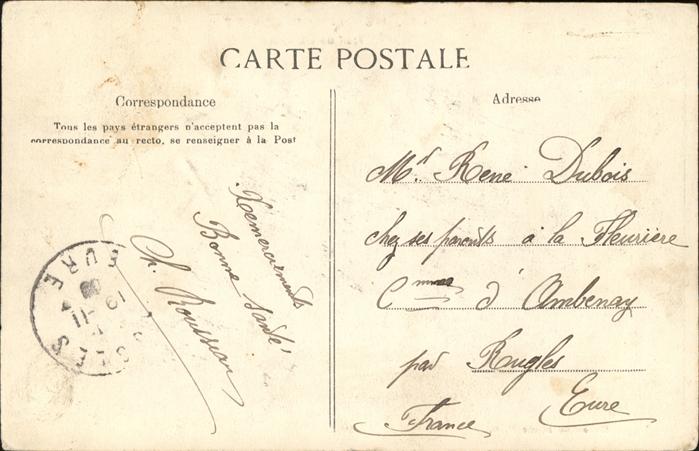 CARTE POSTALE
Correspondance
Tous les pays étrangers n'acceptent pas la
correspondance au recto, se renseigner à la Post
Adresse
Remerciements
Bonne santé
Ch.
Mr. René Dubois
chez ses parents à la Fleurière
Cmmne d'Ambenay
par Rugles
Eure
France
EURE